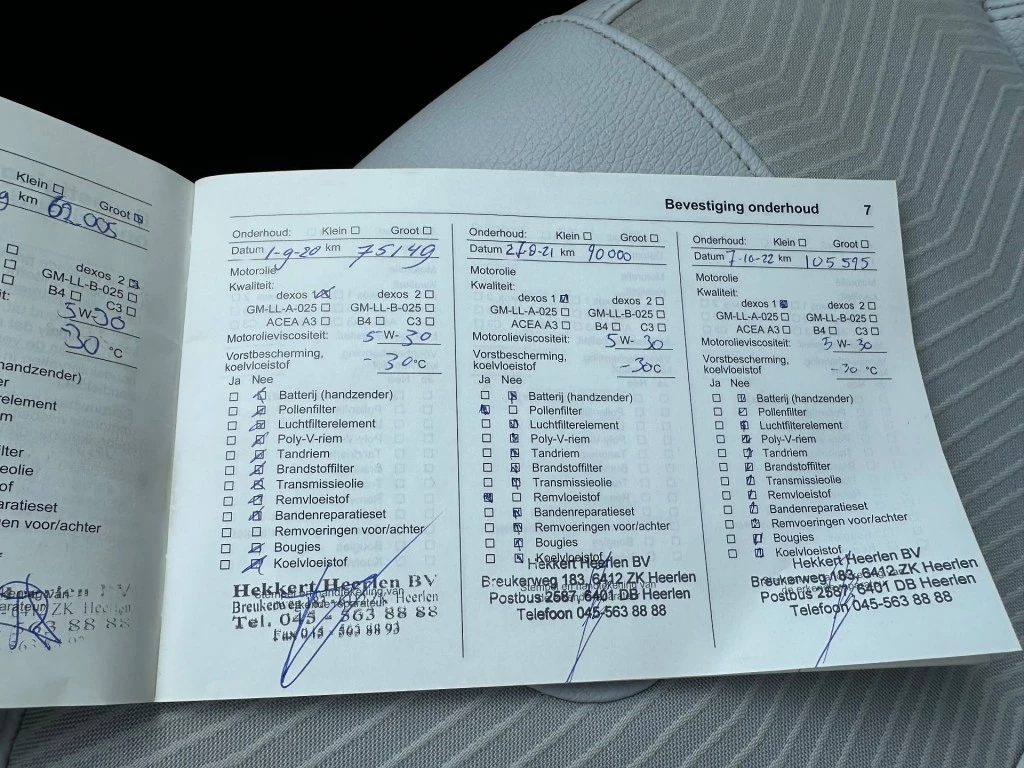 Klein ☐ Groot ☒
km 62.005
dexos 2 ☒
GM-LL-B-025 ☐
B4 ☐ C3 ☐
5 W-30
30 °C
handzender)
Bevestiging onderhoud 7
Onderhoud: Klein ☐ Groot ☐
Datum 1-9-20 km 75149
Motorolie
Kwaliteit:
dexos 1 ☒ dexos 2 ☐
GM-LL-A-025 ☐ GM-LL-B-025 ☐
ACEA A3 ☐ B4 ☐ C3 ☐
Motorolieviscositeit: 5 W- 30
Vorstbescherming,
koelvloeistof - 30 °C
Ja Nee
Batterij (handzender)
Pollenfilter
Luchtfilterelement
Poly-V-riem
Tandriem
Brandstoffilter
Transmissieolie
Remvloeistof
Bandenreparatieset
Remvoeringen voor/achter
Bougies
Koelvloeistof
Hekkert Heerlen BV
Tel. 045 - 563 88 88
Fax 045 - 563 88 93
Onderhoud: Klein ☐ Groot ☐
Datum 27-8-21 km 90000
Motorolie
Kwaliteit:
dexos 1 ☒ dexos 2 ☐
GM-LL-A-025 ☐ GM-LL-B-025 ☐
ACEA A3 ☐ B4 ☐ C3 ☐
Motorolieviscositeit: 5 W- 30
Vorstbescherming,
koelvloeistof -30 °C
Ja Nee
Batterij (handzender)
Pollenfilter
Luchtfilterelement
Poly-V-riem
Tandriem
Brandstoffilter
Transmissieolie
Remvloeistof
Bandenreparatieset
Remvoeringen voor/achter
Bougies
Koelvloeistof
Hekkert Heerlen BV
Breukerweg 183, 6412 ZK Heerlen
Postbus 2587, 6401 DB Heerlen
Telefoon 045-563 88 88
Onderhoud: Klein ☐ Groot ☐
Datum 7-10-22 km 105595
Motorolie
Kwaliteit:
dexos 1 ☒ dexos 2 ☐
GM-LL-A-025 ☐ GM-LL-B-025 ☐
ACEA A3 ☐ B4 ☐ C3 ☐
Motorolieviscositeit: 5 W- 30
Vorstbescherming,
koelvloeistof -30 °C
Ja Nee
Batterij (handzender)
Pollenfilter
Luchtfilterelement
Poly-V-riem
Tandriem
Brandstoffilter
Transmissieolie
Remvloeistof
Bandenreparatieset
Remvoeringen voor/achter
Bougies
Koelvloeistof
Hekkert Heerlen BV
Breukerweg 183, 6412 ZK Heerlen
Postbus 2587, 6401 DB Heerlen
Telefoon 045-563 88 88